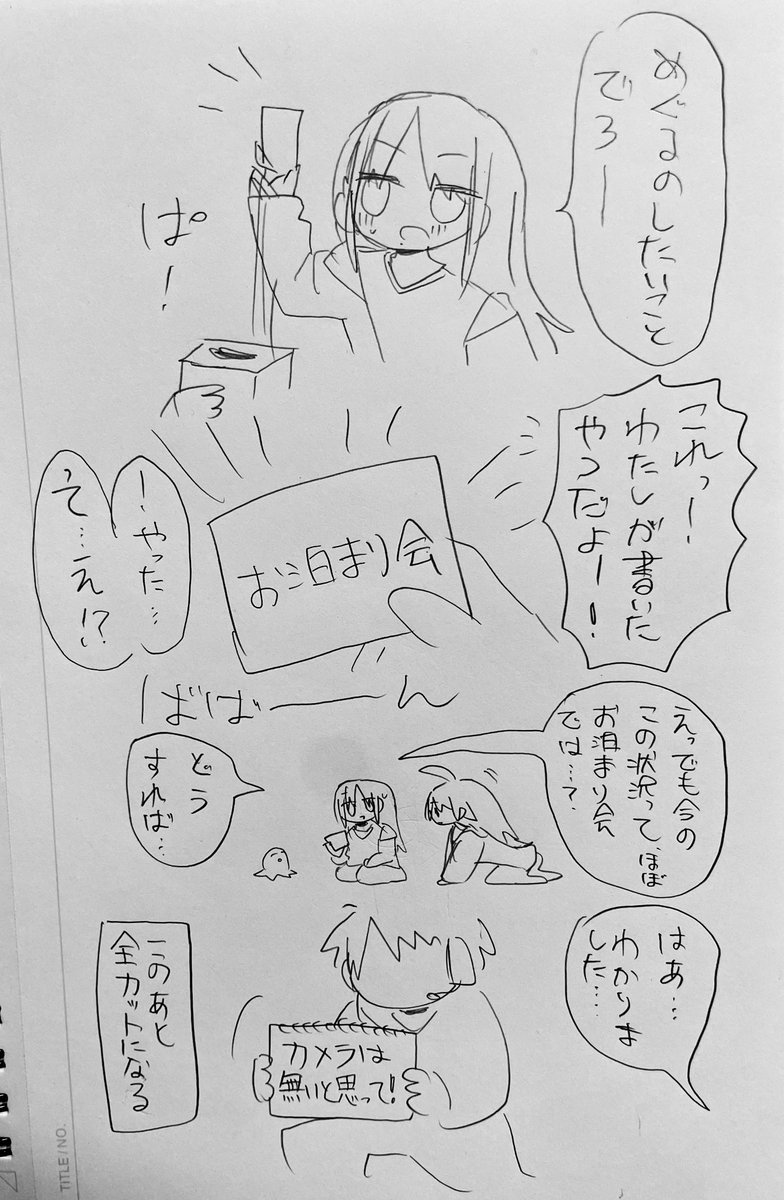 めぐるのしたいこと
でろー
ぱ!
これっ!
わたしが書いた
やつだよー!
お泊まり会
!やった…
え…え!?
ばばーーん
えっでも今の
この状況って、ほぼ
お泊まり会
では…?
どう
すれば…
はぁ…
わかりま
した…
カメラは
無いと思って!
このあと
全カットになる
TITLE/NO.